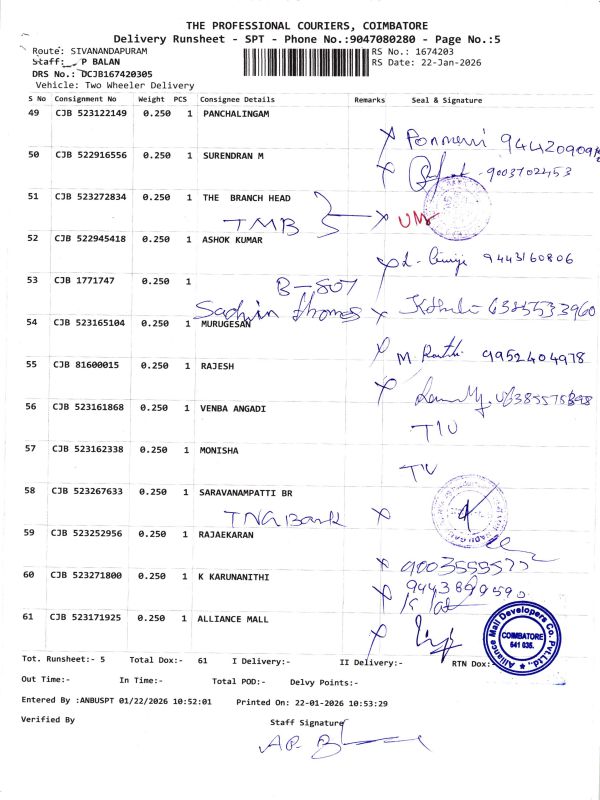 THE PROFESSIONAL COURIERS, COIMBATORE
Delivery Runsheet - SPT - Phone No.:9047080280 - Page No.:5
Route: SIVANANDAPURAM RS No.: 1674203
Staff: P BALAN RS Date: 22-Jan-2026
DRS No.: DCJB167420305
Vehicle: Two Wheeler Delivery
S No Consignment No Weight PCS Consignee Details Remarks Seal & Signature
49 CJB 523122149 0.250 1 PANCHALINGAM
50 CJB 522916556 0.250 1 SURENDRAN M
9003702453
51 CJB 523272834 0.250 1 THE BRANCH HEAD
TMB
52 CJB 522945418 0.250 1 ASHOK KUMAR
9443160806
53 CJB 1771747 0.250 1
B-507
Sachin thomas 6385533960
54 CJB 523165104 0.250 1 MURUGESAN
M. 9952404978
55 CJB 81600015 0.250 1 RAJESH
56 CJB 523161868 0.250 1 VENBA ANGADI
57 CJB 523162338 0.250 1 MONISHA
58 CJB 523267633 0.250 1 SARAVANAMPATTI BR
Bank
59 CJB 523252956 0.250 1 RAJAEKARAN
60 CJB 523271800 0.250 1 K KARUNANITHI
61 CJB 523171925 0.250 1 ALLIANCE MALL
Alliance Mall Developers Co. Pvt.Ltd.
COIMBATORE
641 035.
Tot. Runsheet:- 5 Total Dox:- 61 I Delivery:- II Delivery:- RTN Dox:-
Out Time:- In Time:- Total POD:- Delvy Points:-
Entered By :ANBUSPT 01/22/2026 10:52:01 Printed On: 22-01-2026 10:53:29
Verified By Staff Signature